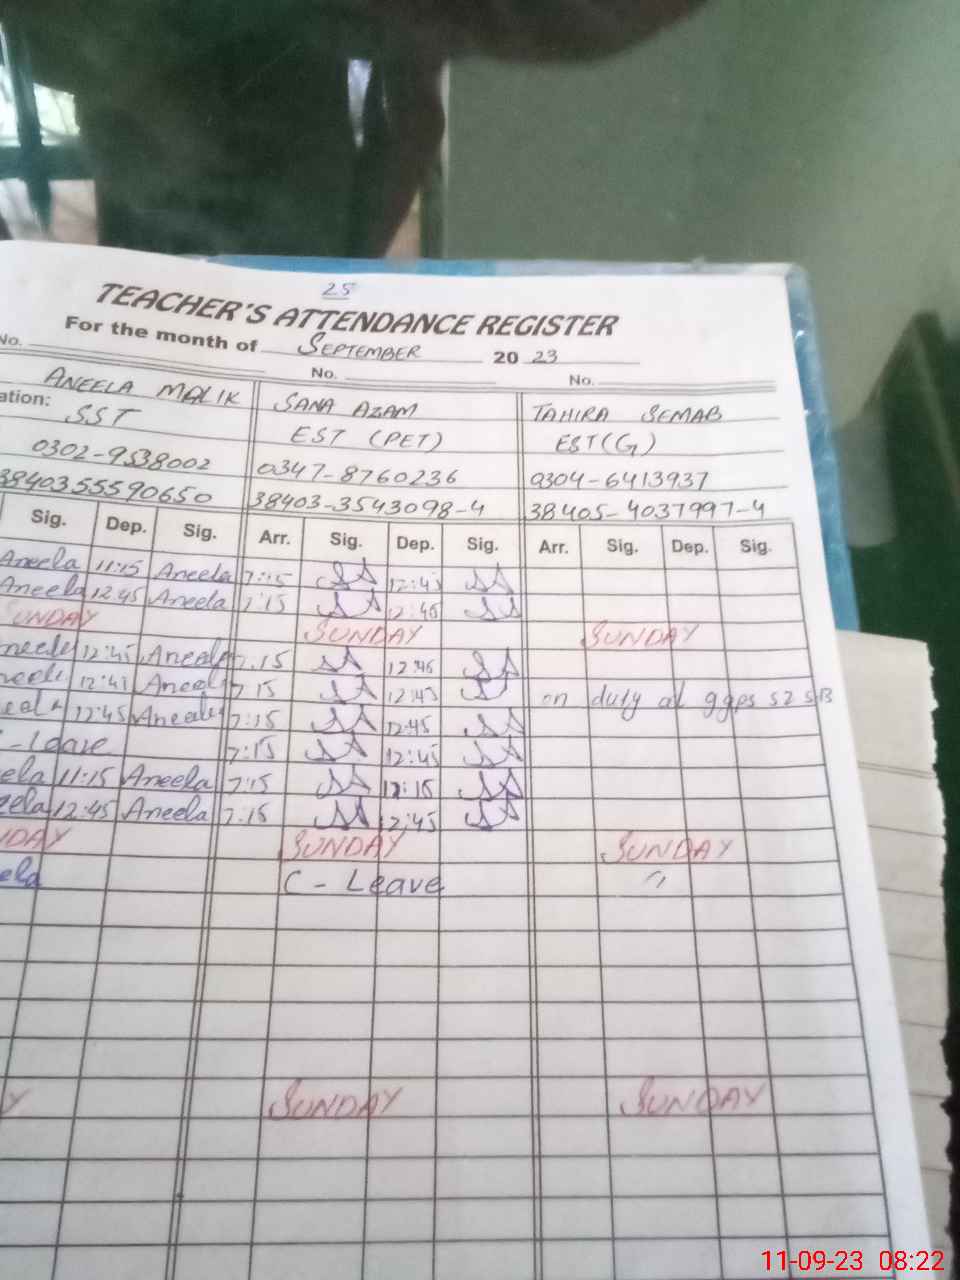 25
TEACHER'S ATTENDANCE REGISTER
For the month of SEPTEMBER 20 23
No. No. No.
ANEELA MALIK SANA AZAM TAHIRA SEMAB
ation: SST EST (PET) EST(G)
0302-9538002 0347-8760236 0304-6413937
3840355590650 38403-3543098-4 38405-4037997-4
Sig. Dep. Sig. Arr. Sig. Dep. Sig. Arr. Sig. Dep. Sig.
Aneela 11:15 Aneela 7:15 SA 12:45 SA
Aneela 12:45 Aneela 7:15 SA 12:45 SA
SUNDAY SUNDAY SUNDAY
neela 12:45 Aneela 7:15 SA 12:45 SA
12:45 Aneela 7:15 SA 12:45 SA on duty at ggps 52 SB
eela 12:45 Aneela 7:15 SA 12:45 SA
C-Leave 7:15 SA 12:45 SA
ela 11:15 Aneela 7:15 SA SA
eela 12:45 Aneela 7:15 SA 12:45 SA
NDAY SUNDAY SUNDAY
ela C - Leave
Y SUNDAY SUNDAY
11-09-23 08:22